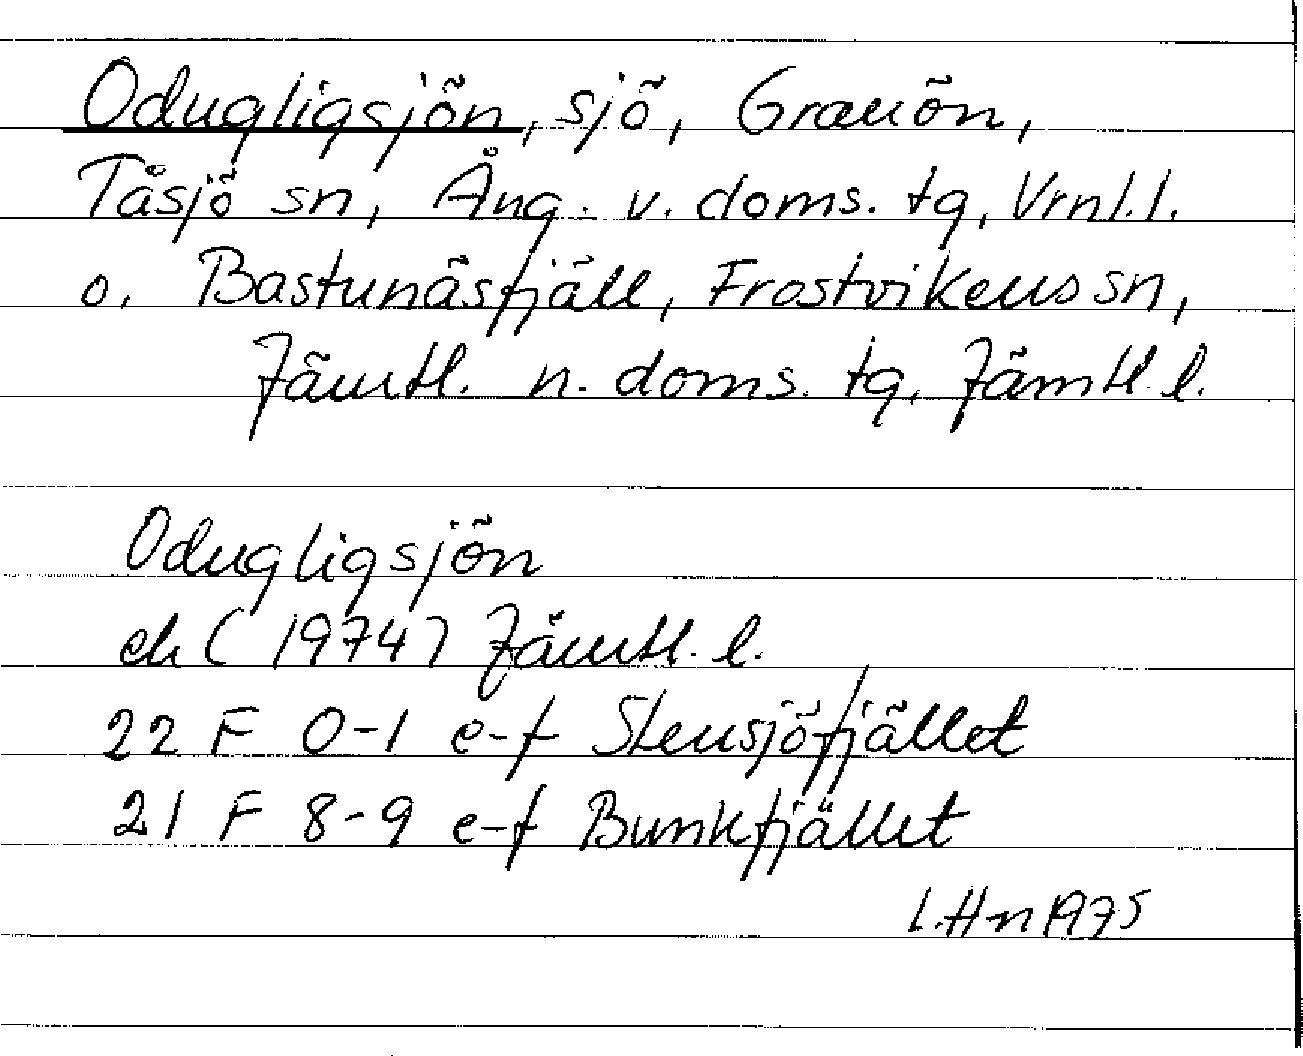 Odugligsjön, sjö, Granön,
Tåsjö sn, Ång. v. doms. tg, Vrnl.l.
o. Bastunäsfjäll, Frostvikens sn,
Jämtl. n. doms. tg, Jämtl. l.
Odugligsjön
ek (1974) Jämtl. l.
22 F 0-1 e-f Stensjöfjället
21 F 8-9 e-f Bunkfjället
L.Hn 1975